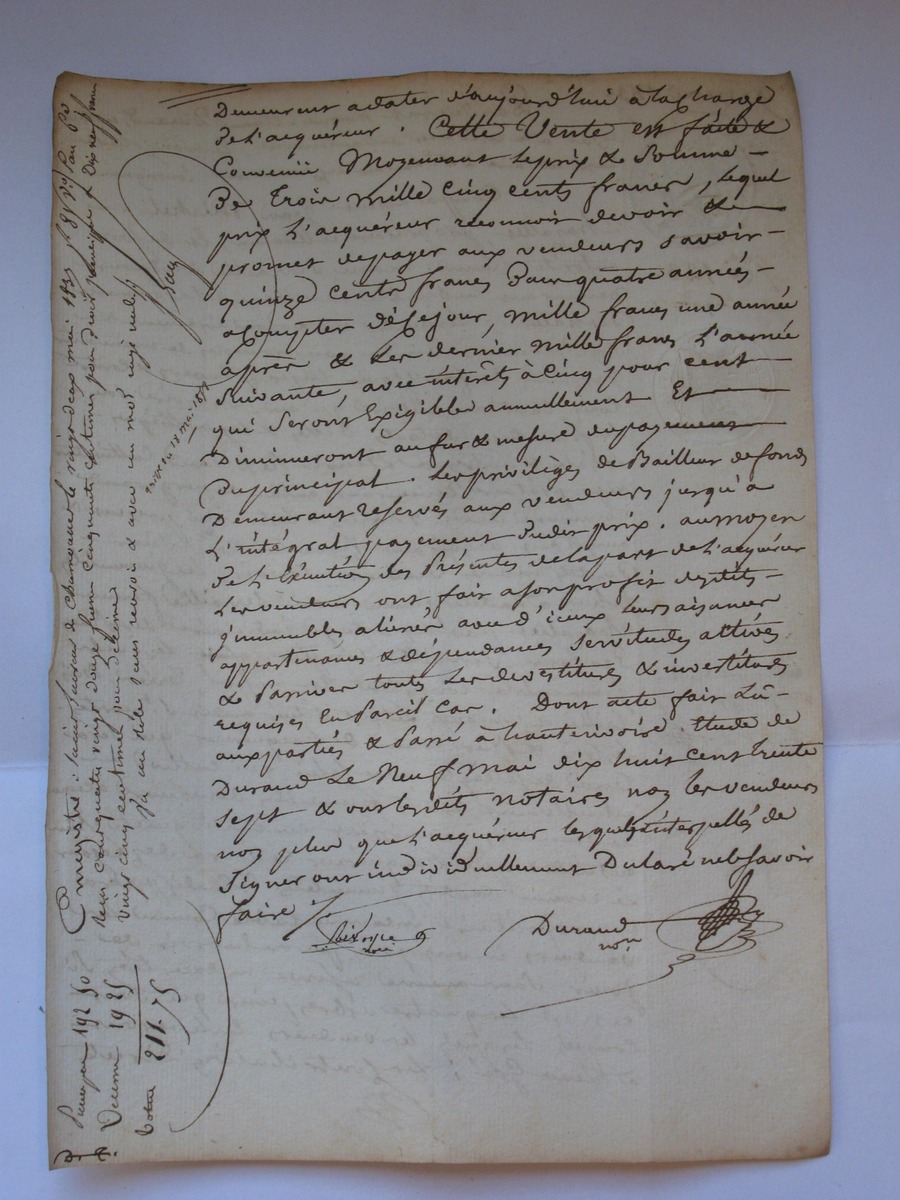 Demeurent a dater d'aujourd'hui à la Charge
de L'acquéreur. Cette Vente est faite &
Convenue Moyennant Le prix & Somme
De Trois mille Cinq cents francs, Lequel
prix L'acquéreur reconnoit devoir &
promet de payer aux vendeurs savoir
quinze cents francs Dans quatre années
a Compter de ce jour, mille francs une année
après & Les dernier mille francs L'année
Suivante, avec intérêts à Cinq pour cent
qui Seront Exigibles annuellement Et
Diminueront au fur & mesure du payement
Du principal. Les privilèges de Bailleur de fonds
Demeurant reservés aux vendeurs jusqu'a
L'intégral payement dudit prix. au moyen
de L'Exécution des Présentes de la part de L'acquéreur
Les vendeurs ont fait a son profit desdits
immeubles aliénés avec d'iceux Leurs aisances
appartenances & dépendances Servitudes actives
& Passives toutes Les devestitures & investitures
requises En Pareil Cas. Dont acte fait Lû
aux parties & Passé à hauterivoire Etude de
Durand Le Neuf mai dix huit cent trente
sept & ont Lesdits notaires non les vendeurs
non plus que L'acquéreur lesquels interpellés de
Signer ont individuellement Déclaré ne le Savoir
faire
Durand
non
Enregistré à Saint Laurent de Chamousset le vingt deux mai 1837 f. 85
reçu cent quatre vingt douze francs cinquante centimes pour droit principal & dix neuf francs
vingt cinq centimes pour décime
192 50
Décime 19 25
Total 211.75